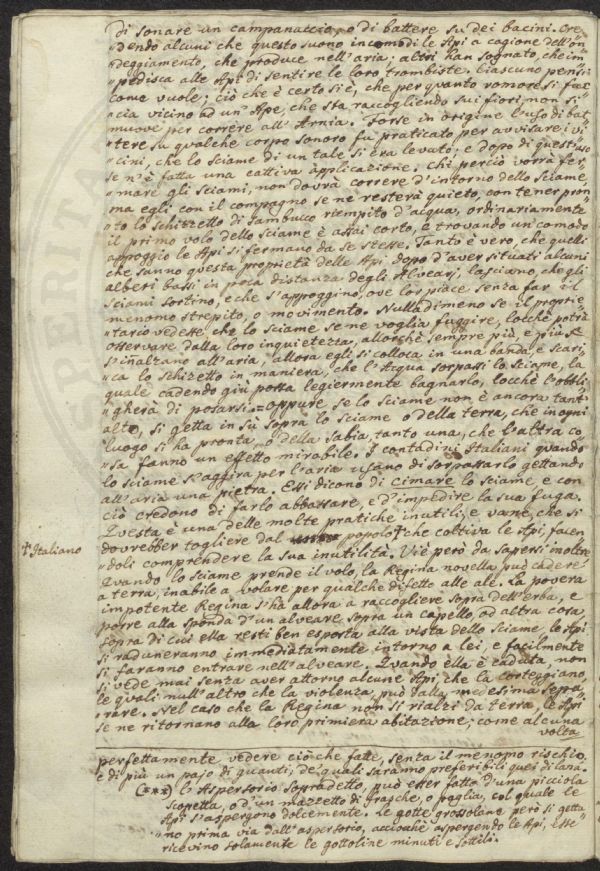 di sonare un campanuccio, o di battere su dei bacini. Cre
dendo alcuni che questo suono incomodi le Api a cagione dell'on
deggiamento, che produce nell'aria; altri han sognato, che im
pedisca alle Api di sentire le loro trombiste. Ciascuno pensi
come vuole; ciò che è certo si è, che per quanto romore si fac
cia vicino ad un'Ape, che sta raccogliendo sui fiori, non si
muove per correre all'Arnia. Forse in origine l'uso di bat
tere su qualche corpo sonoro fu praticato per avvisare i vi
cini, che lo sciame di un tale si era levato; e dopo di quest'uso
se n'è fatta una cattiva applicazione. Chi perciò vorrà fer
mare gli sciami, non dovrà correre d'intorno dello sciame
ma egli con il compagno se ne resterà quieto, con tener pron
to lo schizzetto di sambucco riempito d'acqua, ordinariamente
il primo volo dello sciame è assai corto, e trovando un comodo
appoggio le Api si fermano da se stesse. Tanto è vero, che quelli
che sanno questa proprietà delle Api dopo d'aver situati alcuni
alberi bassi in poca distanza degli Alveari, lasciano, che gli
sciami sortino, e che s'appoggino, ove lor piace senza far il
menomo strepito, o movimento. Nulladimeno se il proprie
tario vedesse, che lo sciame se ne voglia fuggire, locchè potrà
osservare dalla loro inquietezza, allorchè sempre più, e più se
s'inalzano all'aria, allora egli si colloca in una banda, e scari
ca lo schizetto in maniera, che l'Acqua sorpassi lo sciame, la
quale cadendo giù possa legiermente bagnarlo, locchè l'obbli
gherà di posarsi = oppure se lo sciame non è ancora tant'
alto, si getta in su sopra lo sciame o della terra, che in ogni
luogo si ha pronta, o della sabia, tanto una, che l'altra co
sa fanno un effetto mirabile. I contadini Italiani quando
lo sciame s'aggira per l'aria usano di sorpassarlo gettando
all'aria una pietra. Essi dicono di cimare lo sciame, e con
ciò credono di farlo abbassare, e d'impedire la sua fuga.
Questa è una delle molte pratiche inutili, e vane, che si
dovrebber togliere dal popolo † che coltiva le Api, facen
† Italiano
doli comprendere la sua inutilità. Vi è però da sapersi inoltre
Quando lo sciame prende il volo, la Regina novella può cadere
a terra, inabile a volare per qualche difetto alle ale. La povera
impotente Regina s'ha allora a raccogliere sopra dell'erba, e
porre alla sponda d'un alveare sopra un capello, od altra cosa
sopra di cui ella resti ben esposta alla vista dello sciame, le Api
si raduneranno immediatamente intorno a lei, e facilmente
si faranno entrare nell'alveare. Quando ella è caduta, non
si vede mai senza aver attorno alcune Api che la corteggiano,
le quali null'altro che la violenza, può dalla medesima sepa
rare. Nel caso che la Regina non si rialzi da terra, le Api
se ne ritornano alla loro primiera abitazione; come alcuna
volta
perfettamente vedere ciò che fatte, senza il menomo rischio
e di più un pajo di guanti, de' quali saranno preferibili quei di lana.
(***) lo Aspersorio sopradetto, può esser fatto d'una picciola
scopetta, o d'un mazzetto di frasche, o paglia, col quale le
Api s'aspergono dolcemente. Le gotte grossolane però si getta
no prima via dall'aspersorio, acciochè aspergendo le Api, esse
ricevino solamente le gottoline minuti e sottili.